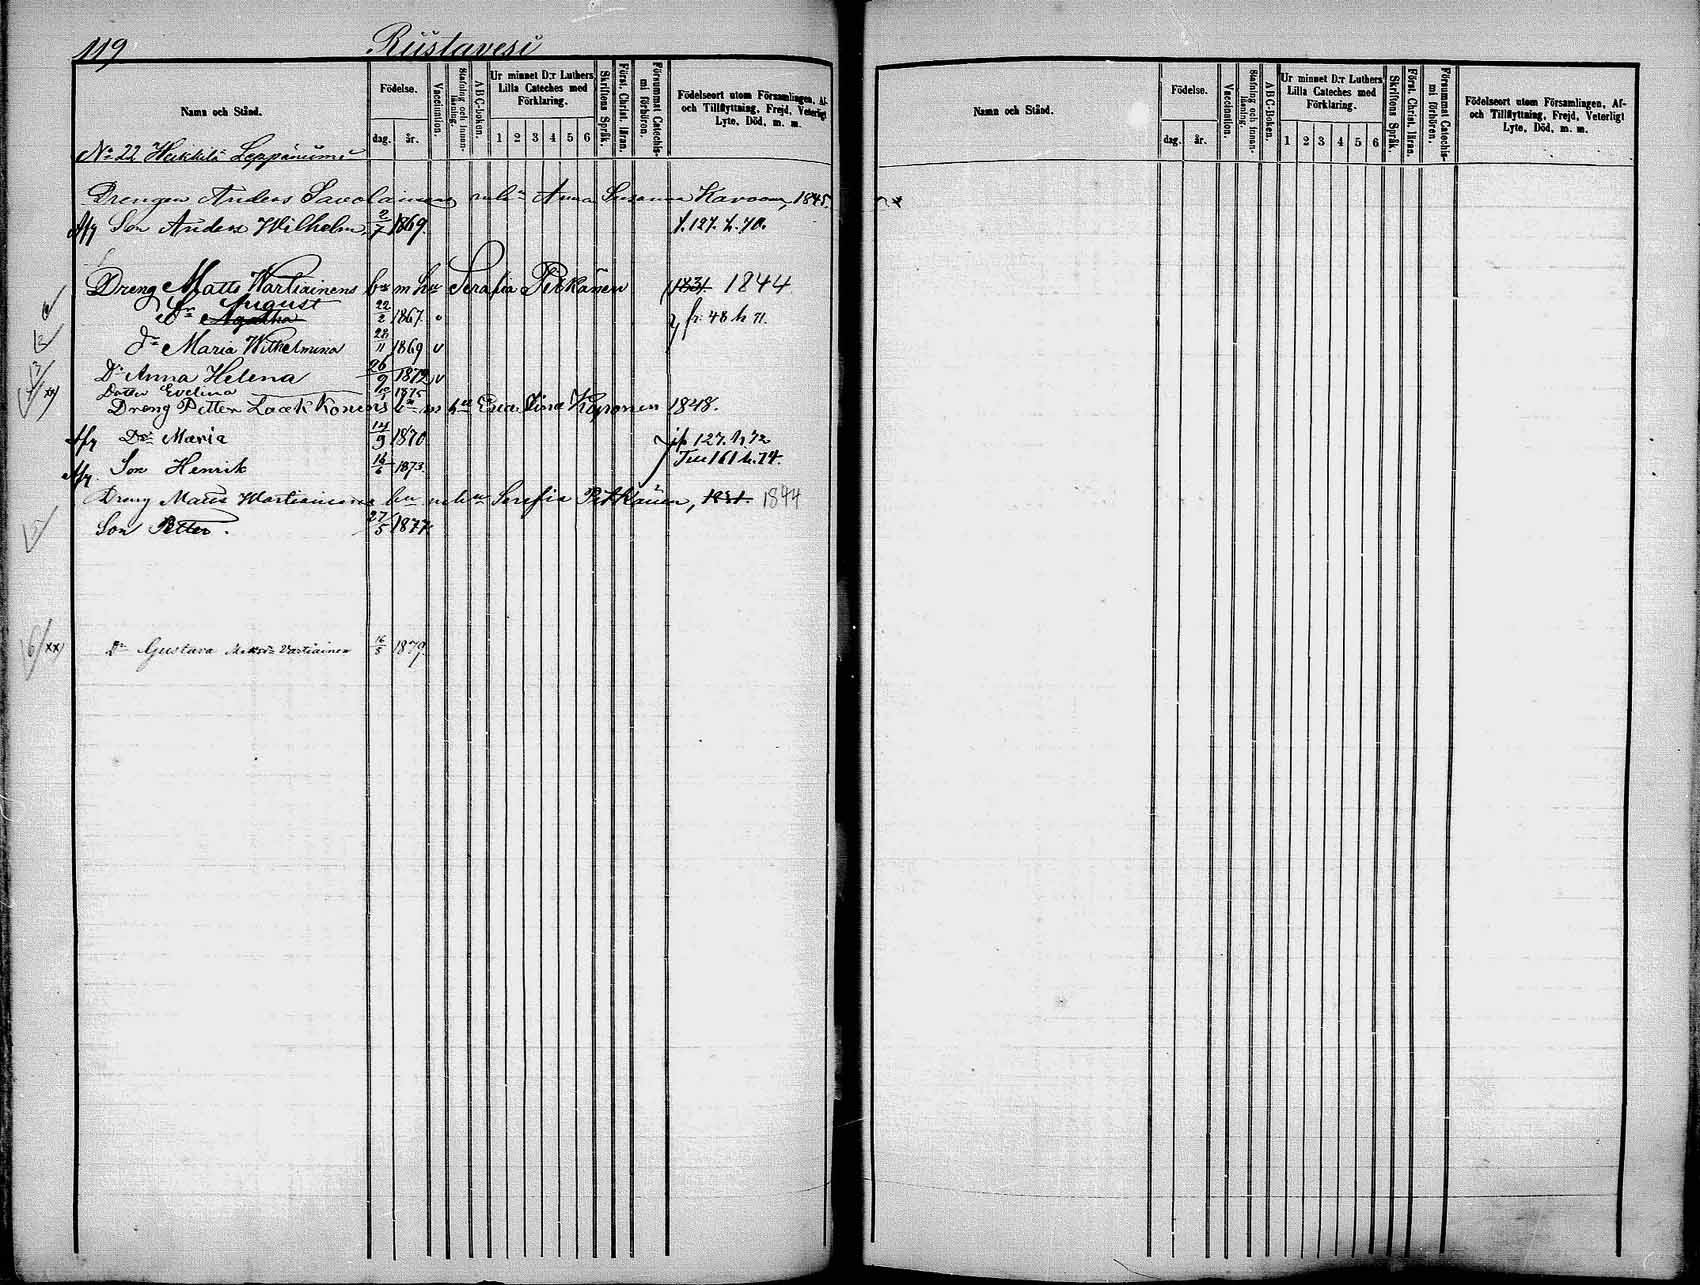 119 Riistavesi
Namn och Stånd.
Födelse.
dag. år.
Vaccination.
Stafning och Innanläsning.
A B C-boken.
Ur minnet D:r Luthers Lilla Cateches med Förklaring.
1 2 3 4 5 6
Skriftens Språk.
Först. Christ. läran.
Försummat Catechismi förhören.
Födelseort utom Församlingen, Af- och Tillflyttning, Frejd, Veterligt Lyte, Död, m. m.
No 22 Heikkilä Leppäniemi
Drengen Anders Savolainens Anna Susanna 1845.
Afg Son Anders Wilhelm 2/7 1869. f. 127. h. 70.
Dreng Matts Wartiainens bn m hu Serafia Pitkänen 1831. 1844
August
Sn Agatha 22/2 1867. fr. 48 h 71.
Dr Maria Wilhelmina 28/11 1869 v
Dr Anna Helena 26/9 1872 v
Dotter Evelina 1875
Dreng Petter Laakkonens bn m hu Eva Stina Kaponen 1848.
Afg Dr Maria 14/9 1870 127. h 72
Afg Son Henrik 14/6 1873. 161 h. 74.
Dreng Matts Wartiainens bn m hu Serafia Pitkänen, 1831. 1844
Son Petter. 27/5 1877.
6/xx) Dr Gustava Vartiainen 16/5 1879.
Namn och Stånd.
Födelse.
dag. år.
Vaccination.
Stafning och Innanläsning.
A B C-Boken.
Ur minnet D:r Luthers Lilla Cateches med Förklaring.
1 2 3 4 5 6
Skriftens Språk.
Först. Christ. läran.
Försummat Catechismi förhören.
Födelseort utom Församlingen, Af- och Tillflyttning, Frejd, Veterligt Lyte, Död, m. m.